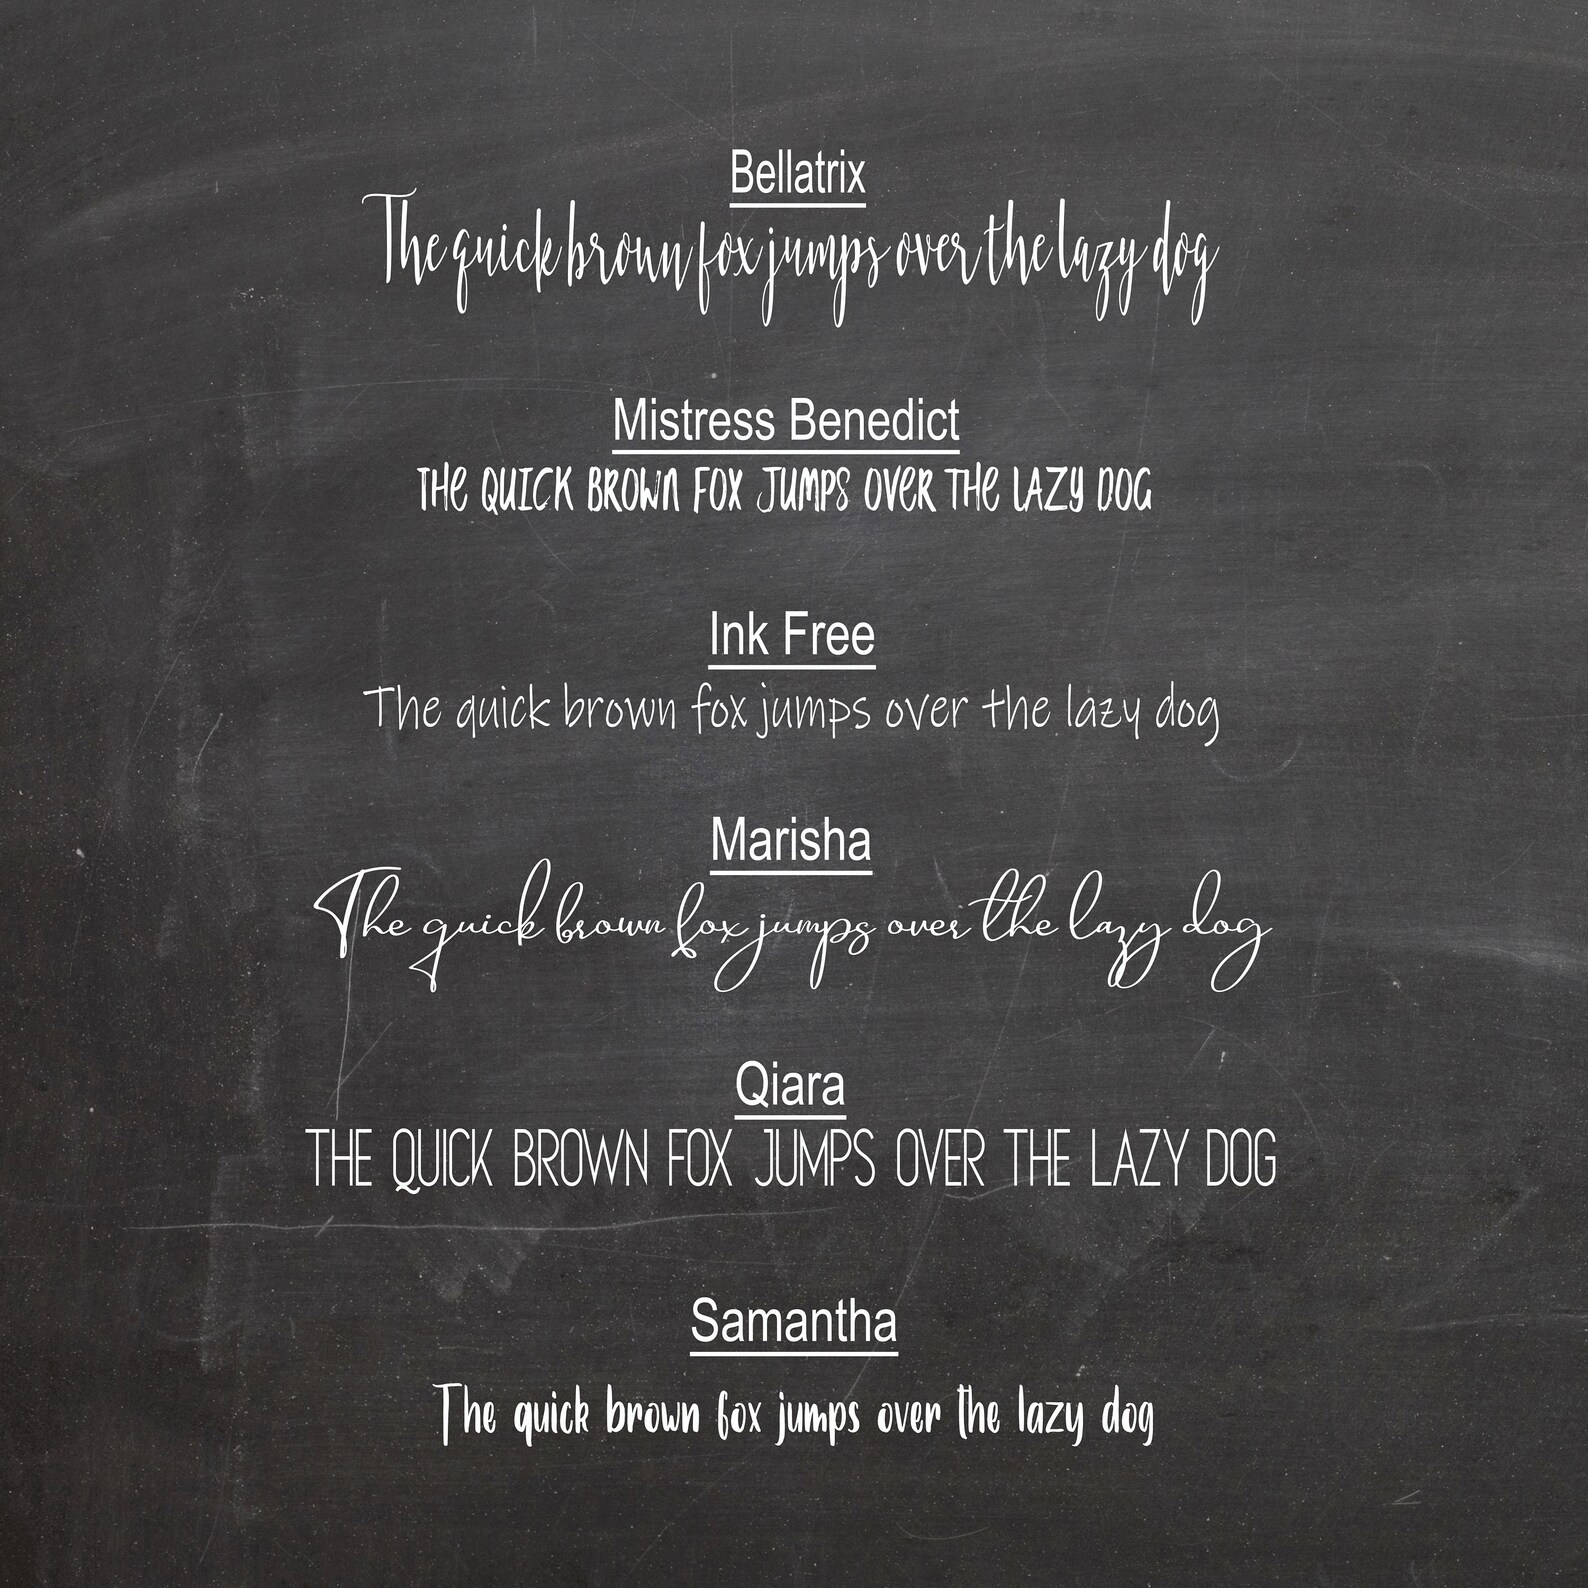 Bellatrix
The quick brown fox jumps over the lazy dog
Mistress Benedict
THE QUICK BROWN FOX JUMPS OVER THE LAZY DOG
Ink Free
The quick brown fox jumps over the lazy dog
Marisha
The quick brown fox jumps over the lazy dog
Qiara
THE QUICK BROWN FOX JUMPS OVER THE LAZY DOG
Samantha
The quick brown fox jumps over the lazy dog